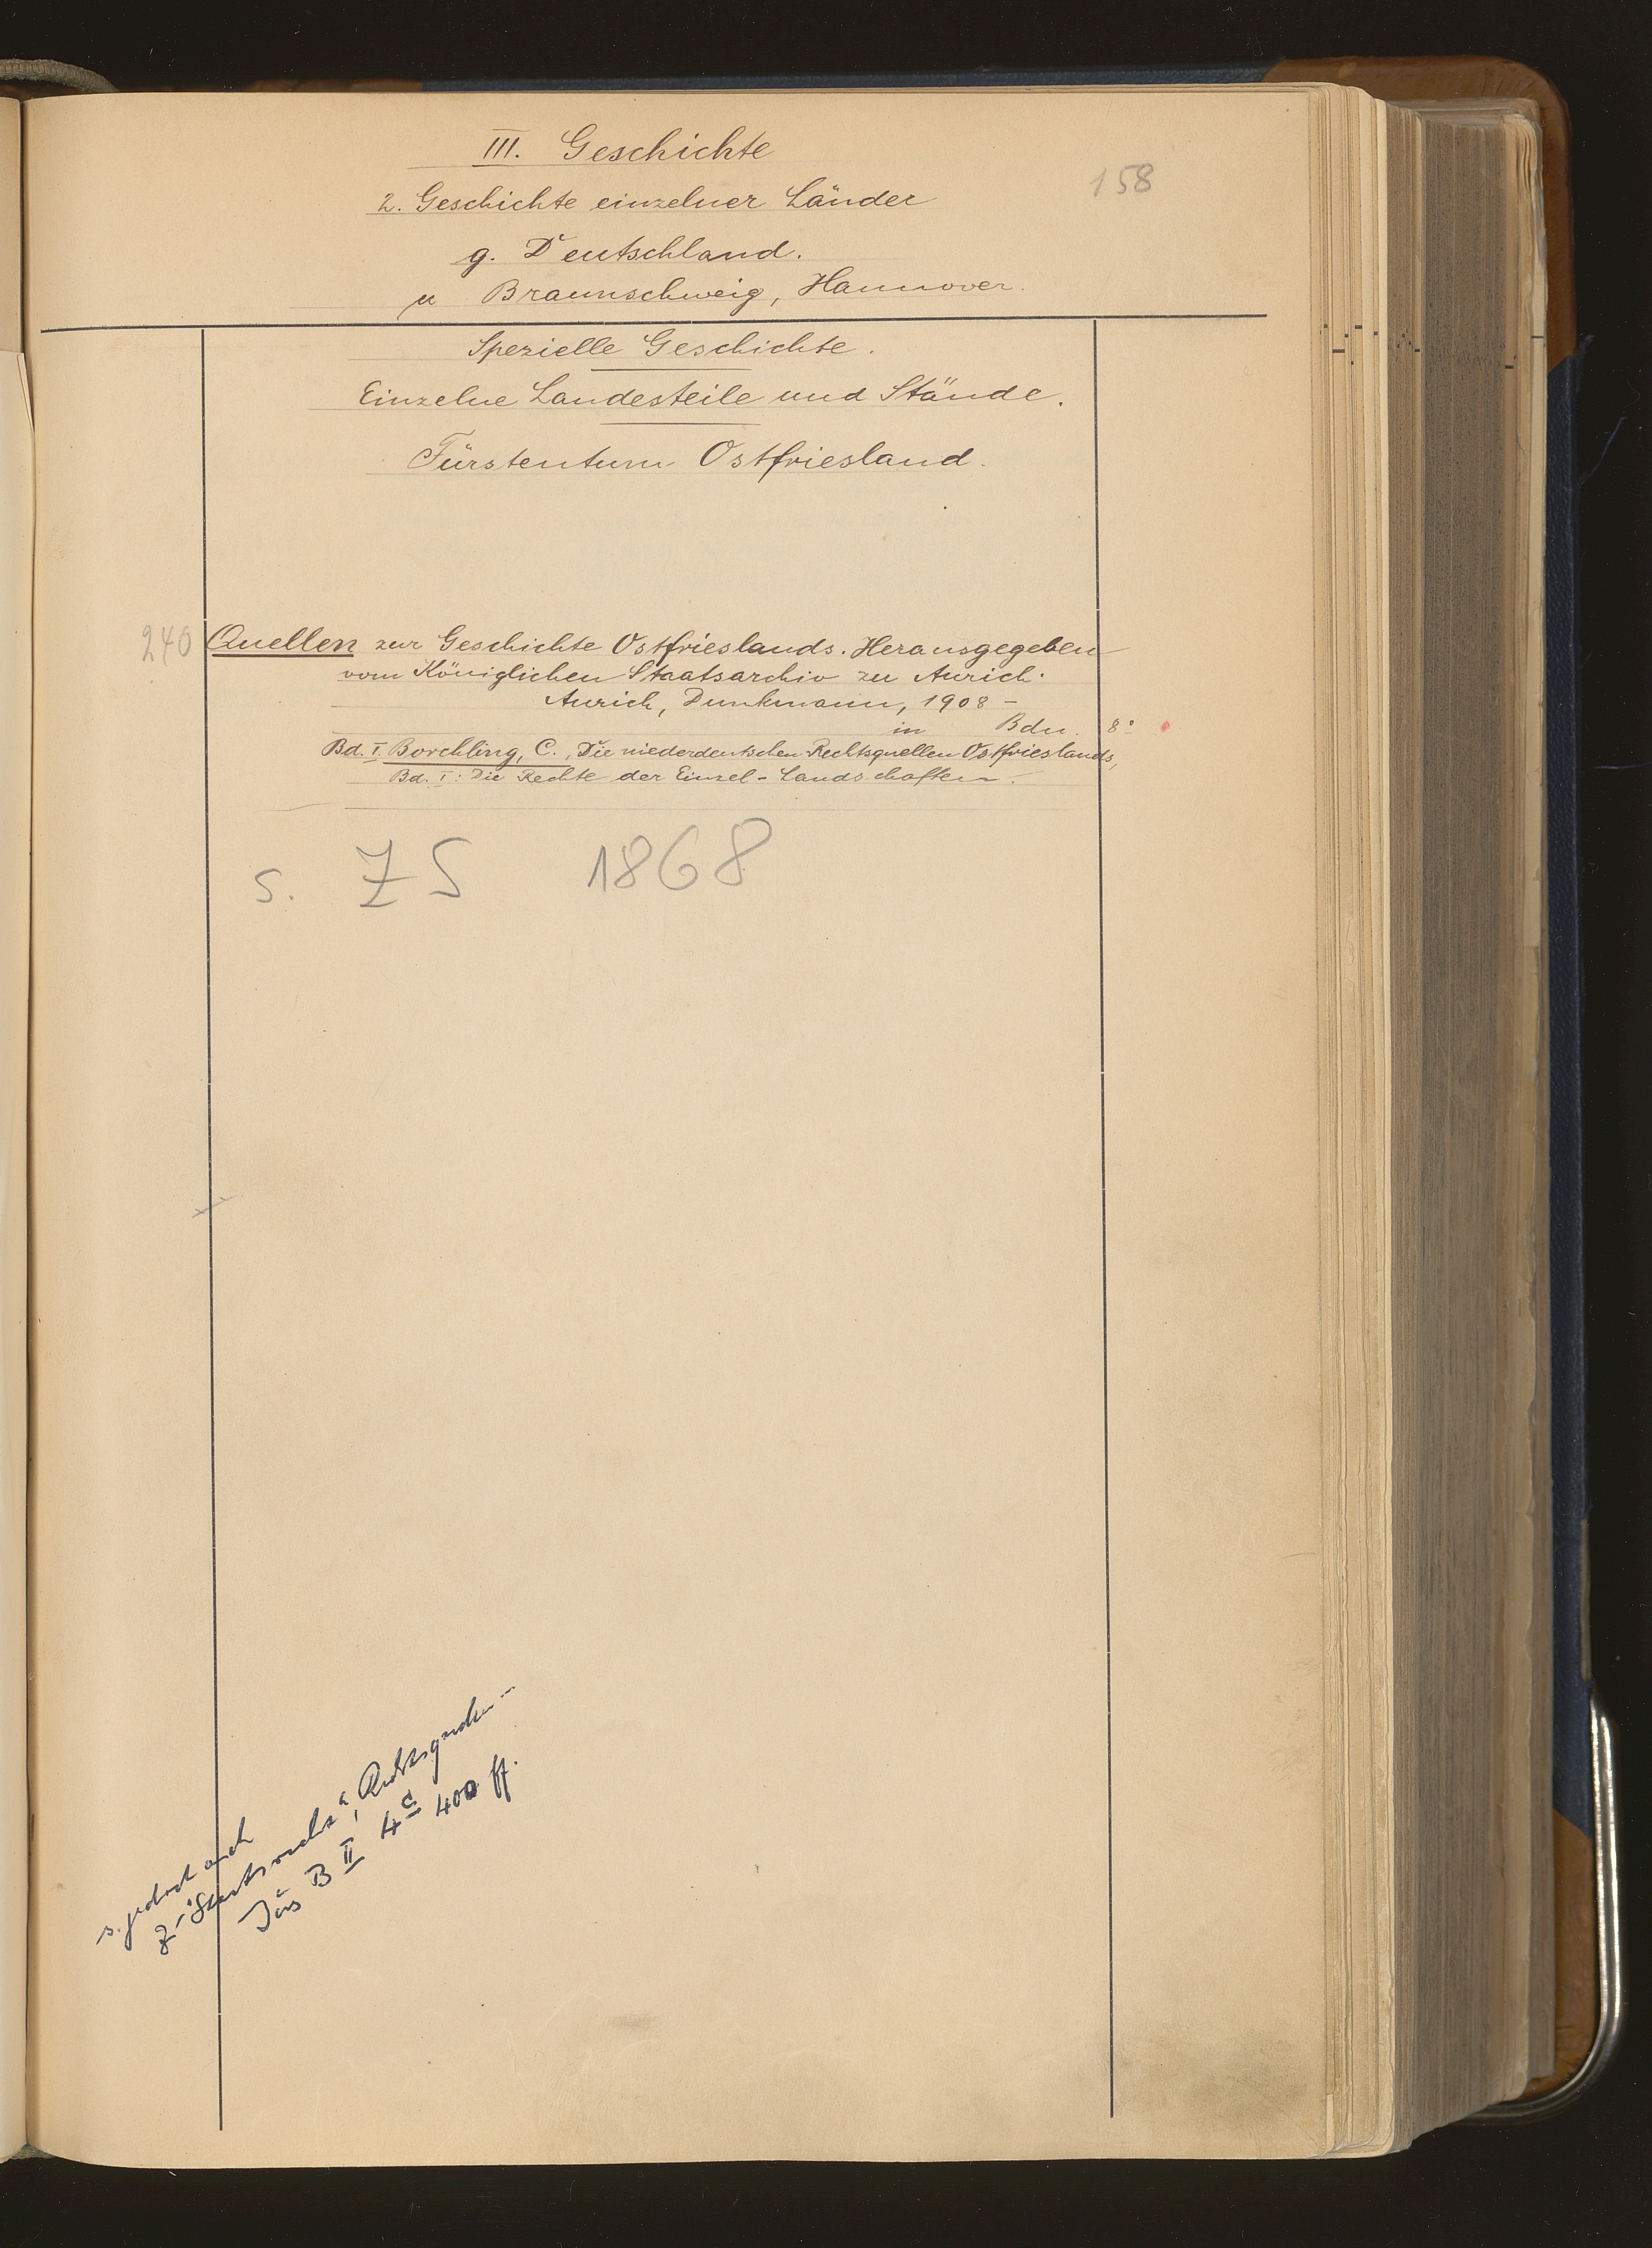 III. Geschichte
158
2. Geschichte einzelner Länder
g. Deutschland.
u Braunschweig, Hannover.
Spezielle Geschichte.
Einzelne Landesteile und Stände.
Fürstentum Ostfriesland.
240 Quellen zur Geschichte Ostfrieslands. Herausgegeben
vom Königlichen Staatsarchiv zu Aurich.
Aurich, Dunkmann, 1908 -
in Bdn. 8°
Bd. I. Borchling, C., Die niederdeutschen Rechtsquellen Ostfrieslands,
Bd. I: Die Rechte der Einzel-Landschaften.
s. ZS 1868
s. jedoch auch
Jus B II 4c 400 ff.